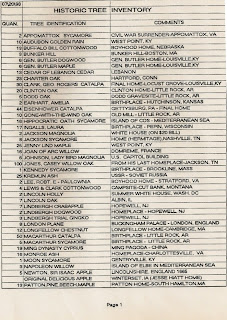 07/20/93
HISTORIC TREE INVENTORY
QUAN. TREE IDENTIFICATION COMMENTS
2 APPOMATTOX SYCAMORE CIVIL WAR SURRENDER-APPOMATTOX, VA
10 AUDUBON GOLDEN RAIN WEST POINT, KY
11 BUFFALO BILL COTTONWOOD BOYHOOD HOME, NEBRASKA
BUNKER HILL BUNKER HILL-BOSTON, MA
GEN. BUTLER DOGWOOD GEN. BUTLER HOME-LOUISVILLE, KY
GEN. BUTLER MAPLE GEN. BUTLER HOME-LOUISVILLE, KY
CEDAR OF LEBANON CEDAR LEBANON
CHARTER OAK HARTFORD, CONN
CLARK, GEO. ROGERS CATALPA FINAL HOME-LOCUST GROVE-LOUISVILLE, KY
CLINTON OAK CLINTON HOME-LITTLE ROCK, AR
DODD OAK DODD GRAVESITE-LITTLE ROCK, AR
EARHART, AMELIA BIRTHPLACE - HUTCHINSON, KANSAS
EISENHOWER CATALPA GETTYSBURG, PA - FINAL HOME
GONE-WITH-THE-WIND OAK OLD MILL - LITTLE ROCK, AR
HIPPOCRATIC OATH SYCAMORE ISLAND OF COS - MEDITERRANEAN SEA
INGALLS, LAURA BIRTHPLACE - PEPIN, WISCONSIN
JACKSON MAGNOLIA WHITE HOUSE (ON $20 BILL)
JACKSON SYCAMORE HOME (HERMITAGE)-NASHVILLE, TN
JENNY LIND MAPLE WEST POINT, KY
JOAN OF ARC WILLOW DOMREME, FRANCE
JOHNSON, LADY BIRD MAGNOLIA U.S. CAPITOL BUILDING
JONES, CASEY WILLOW OAK FROM HIS LAST HOMEPLACE-JACKSON, TN
KENNEDY SYCAMORE BIRTHPLACE - BROOKLINE, MASS
KREMLIN ASH USSR - SOVIET RUSSIA
LEE, ROBT. E. TAXUS
LEWIS & CLARK COTTONWOOD CAMPSITE-CUT BANK, MONTANA
LINCOLN HOLLY SUMMER WHITE HOUSE, WASH. DC
LINCOLN OAK ALBIN, IL
LINDBERGH CRABAPPLE HOPEWELL, NJ
LINDBERGH DOGWOOD HOMEPLACE - HOPEWELL, NJ
LINDBERGH TRIAL GINKGO HOPEWELL, NJ
LONDON OAK BUCKINGHAM PALACE - LONDON, ENGLAND
LONGFELLOW CHESTNUT LONGFELLOW HOME-CAMBRIDGE, MA
MACARTHUR CATALPA BIRTHPLACE - LITTLE ROCK, AR
MACARTHUR SYCAMORE BIRTHPLACE - LITTLE ROCK, AR
MING DYNASTY CYPRUS MING PAGODA - CHINA
MONROE ASH HOMEPLACE-CHARLOTTESVILLE, VA
MOON SYCAMORE
NAPOLEON WILLOW ISLAND OF ELBE IN MEDITERRANEAN SEA
NEWTON, SIR ISAAC APPLE LINCOLNSHIRE, ENGLAND 1665
ORIGINAL DELICIOUS APPLE WINTERSET, IA (JESSE HIATT HOME)
PATTON, PINE, BEECH, MAPLE PATTON HOME-SOUTH HAMILTON, MA
Page 1